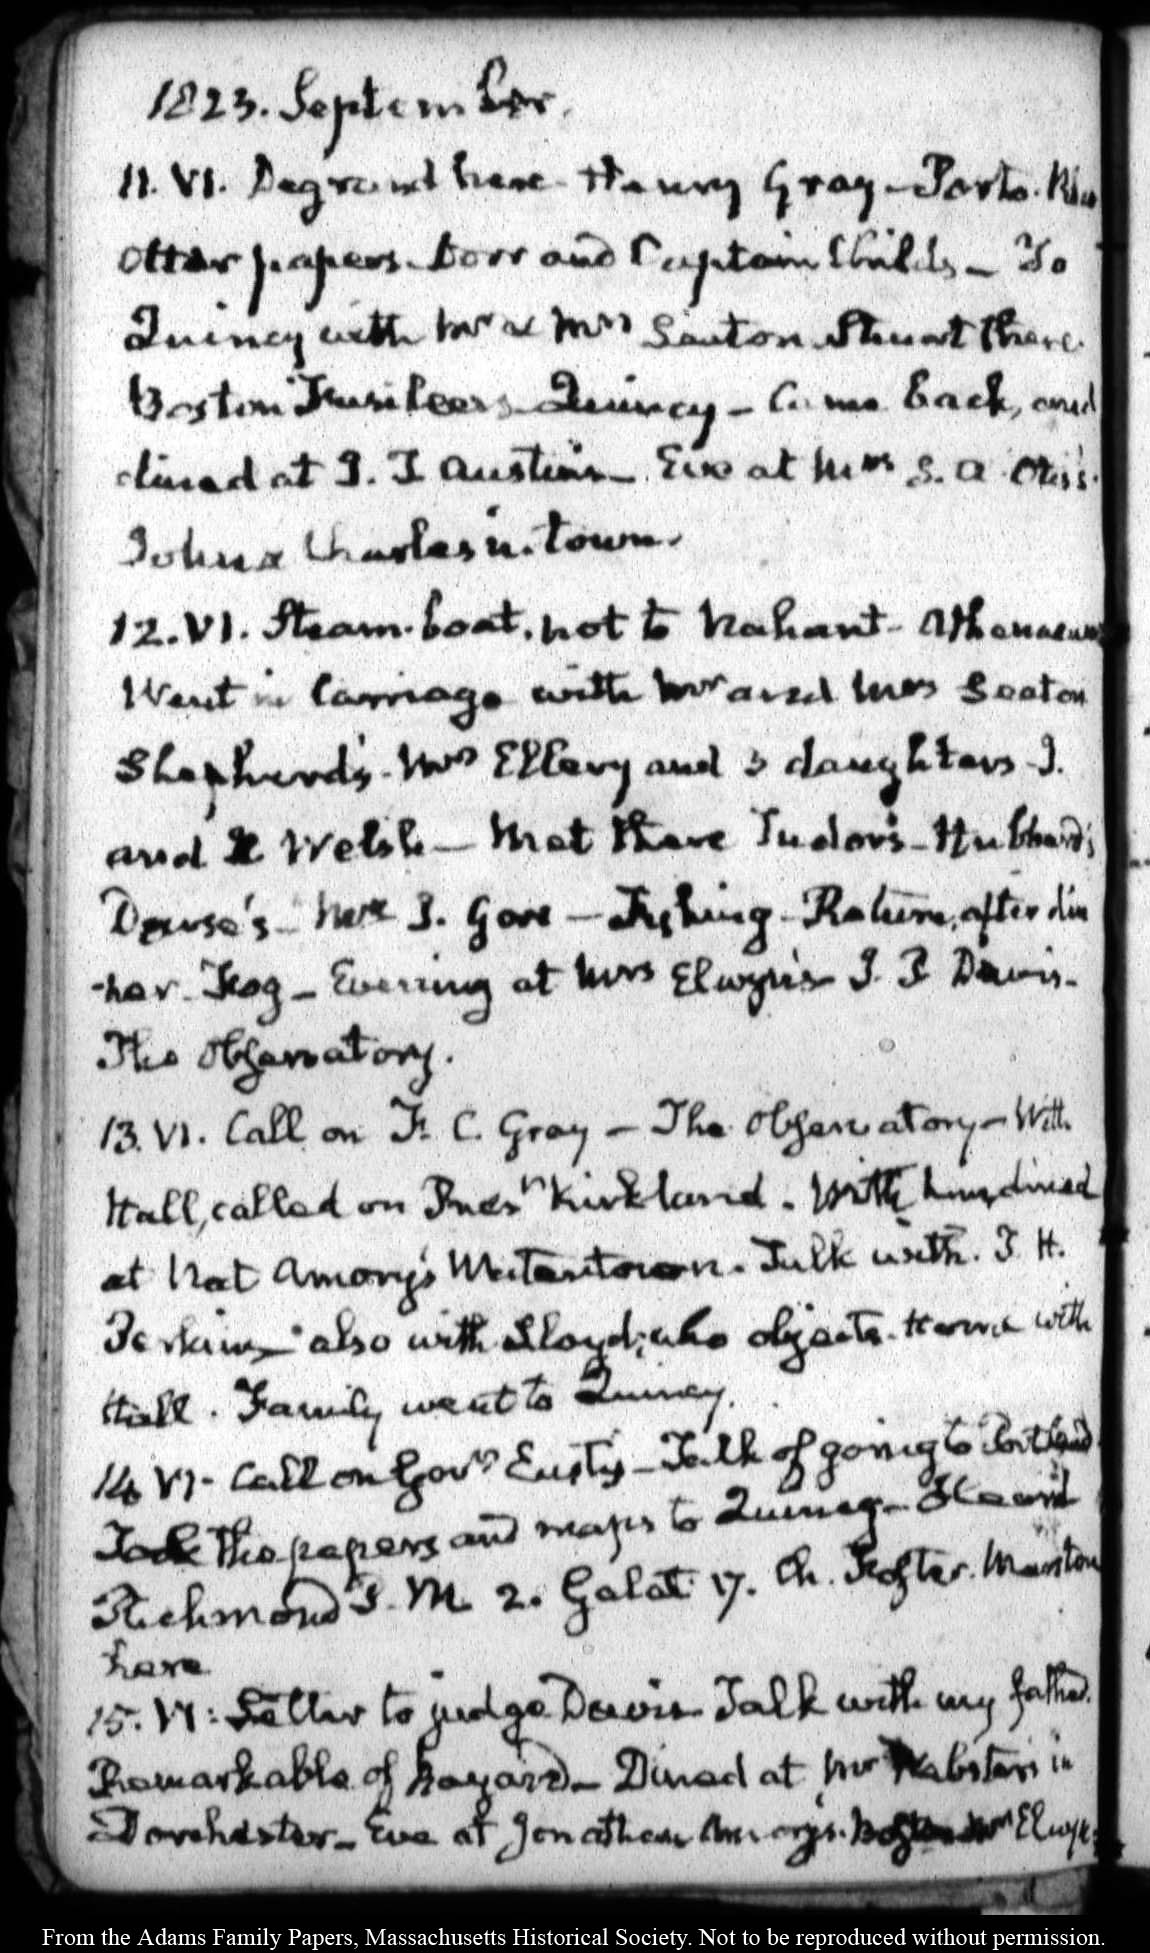 1823. September.
11. VI. Degrand here. Henry Gray – Porto. Rico
Otter papers. Dorr and Captain Childs – To
Quincy with Mr & Mrs Seaton. Stuart there.
Boston Fusileers – Quincy – Came back, and
dined at J. T Austin's – Eve at Mrs S. A. Otis's.
John & Charles in town.
12. VI. Steam-boat, not to Nahant – Athenaeum
Went in Carriage with Mr and Mrs Seaton
Shepherd's. Mrs Ellery and 3 daughters J.
and Welsh – Met there Tudor's – Hubbard's
Dowse's – Mrs J. Gore – Fishing – Return, after din
-ner. Fog – Evening at Mrs Elwyn's – J. P. Davis –
The Observatory.
13. VI. Call on F. C. Gray – The Observatory – With
Hall, called on Presn. Kirkland. With him, dined
at Nat Amory's Watertown. Talk with. T. H.
Perkins – also with Lloyd; who objects. Home with
Hall. Family went to Quincy.
14 VI. Call on Govr Eustis – Talk of going to Portland
Took the papers and maps to Quincy – Heard
Richmond P. M 2. Galat 17. Ch. Foster. Marston
here
15. VI: Letter to judge Davis. Talk with my father.
Remarkable of hazard – Dined at Mr Webster's in
Dorchester – Eve at Jonathan Amory's. Mrs Elwyn
From the Adams Family Papers, Massachusetts Historical Society. Not to be reproduced without permission.